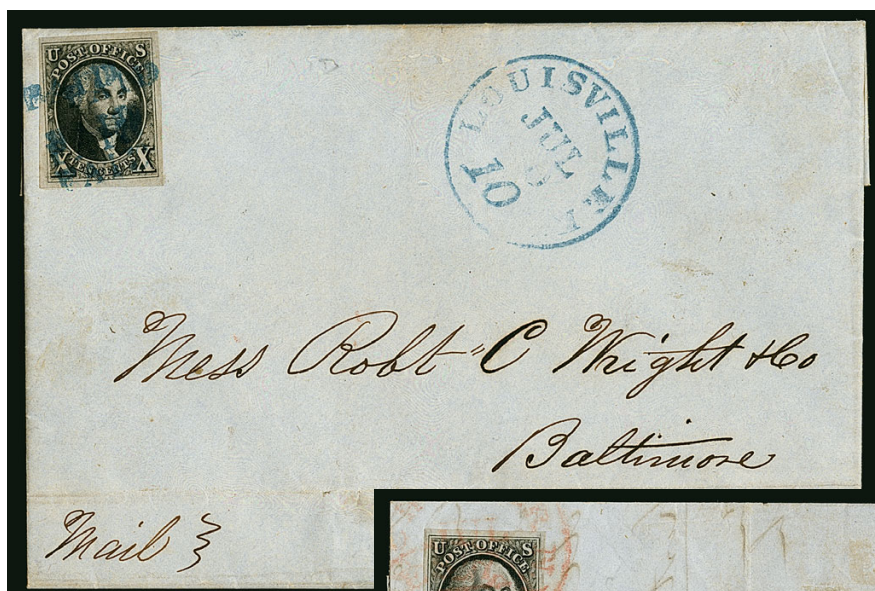 U S
POST OFFICE
X TEN CENTS X
LOUISVILLE
JUL
10
Mess Robt " C Wright & Co
Baltimore
Mail
U S
POST OFFICE